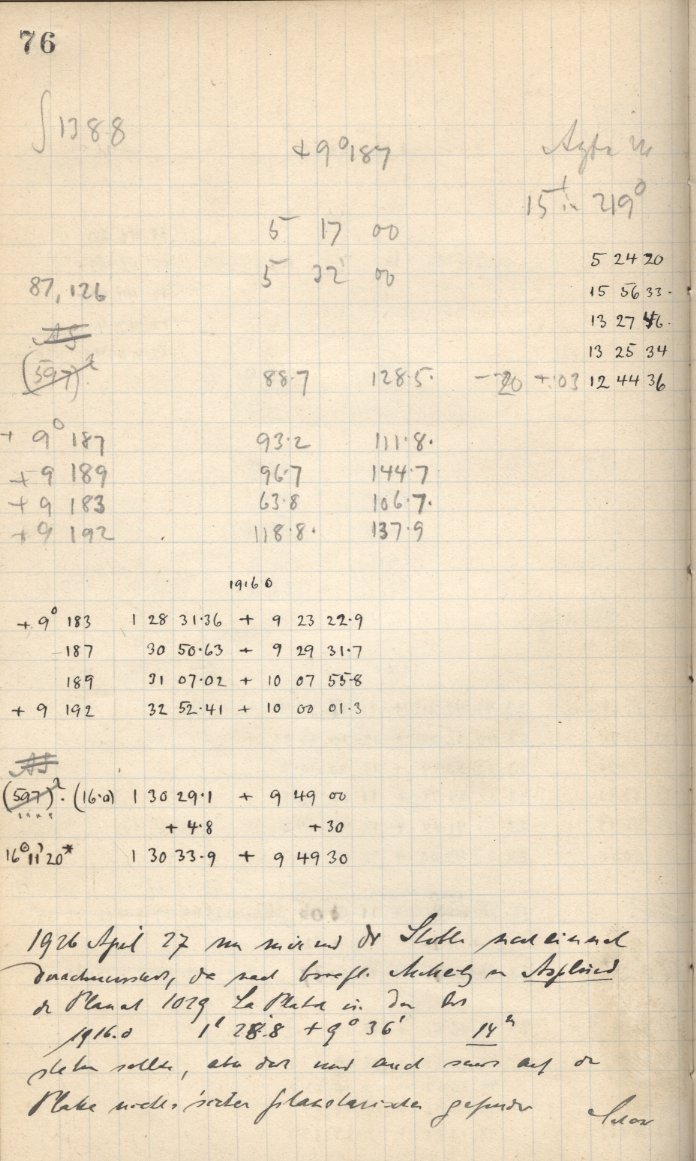 76
∫1388
+9°187
15 in 219°
5 17 00
5 32 00
5 24 20
87,126
15 56 33
13 27 46
13 25 34
(597)
88.7 128.5 -20 +.03 12 44 36
+ 9° 187 93.2 111.8
+ 9 189 96.7 144.7
+ 9 183 63.8 106.7
+ 9 192 118.8 137.9
1916.0
+ 9° 183 1 28 31.36 + 9 23 22.9
187 30 50.63 + 9 29 31.7
189 31 07.02 + 10 07 55.8
+ 9 192 32 52.41 + 10 00 01.3
(597) (16.0) 1 30 29.1 + 9 49 00
+ 4.8 +30
16° 11' 20* 1 30 33.9 + 9 49 30
1926 April 27 von mir und Dr Stobbe noch einmal
durchmustert, da nach
der Planet 1029 La Plata in der
1916.0 1 28.8 + 9° 36' 14
stehen sollte, aber dort und auch sonst auf der
Platte nichts sicher planetarisches gefunden